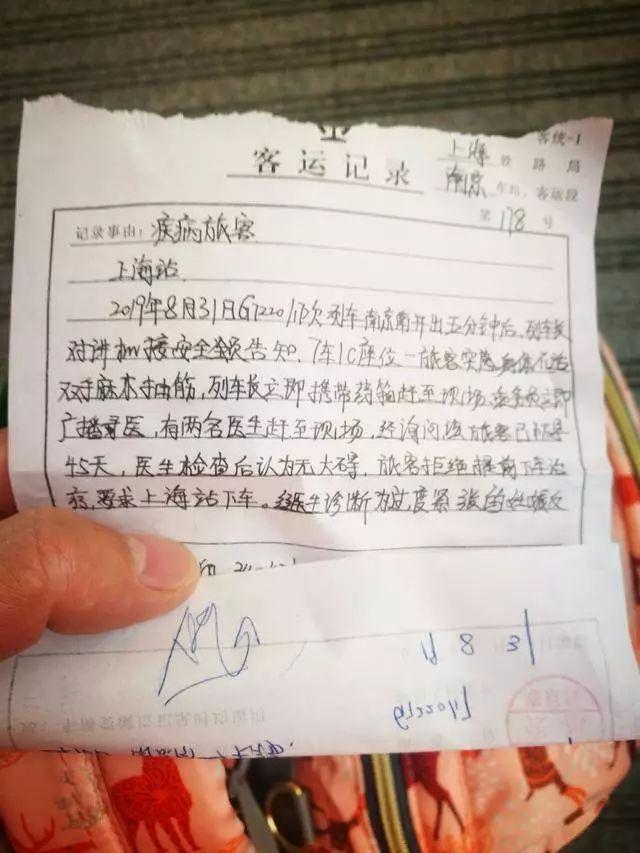 客统-1
上海 铁路局
客运记录
南京 车站、客运段
第 178 号
记录事由：疾病旅客
上海站
2019年8月31日G7220/17次列车南京南开出五分钟后，列车长
对讲机接安全员告知，7车1C座位一旅客突感身体不适
双手麻木抽筋，列车长立即携带药箱赶至现场，立即
广播寻医，有两名医生赶至现场，经询问该旅客已怀孕
45天，医生检查后认为无大碍，旅客拒绝提前下车治
疗，要求上海站下车。经医生诊断为过度紧张的妊娠反